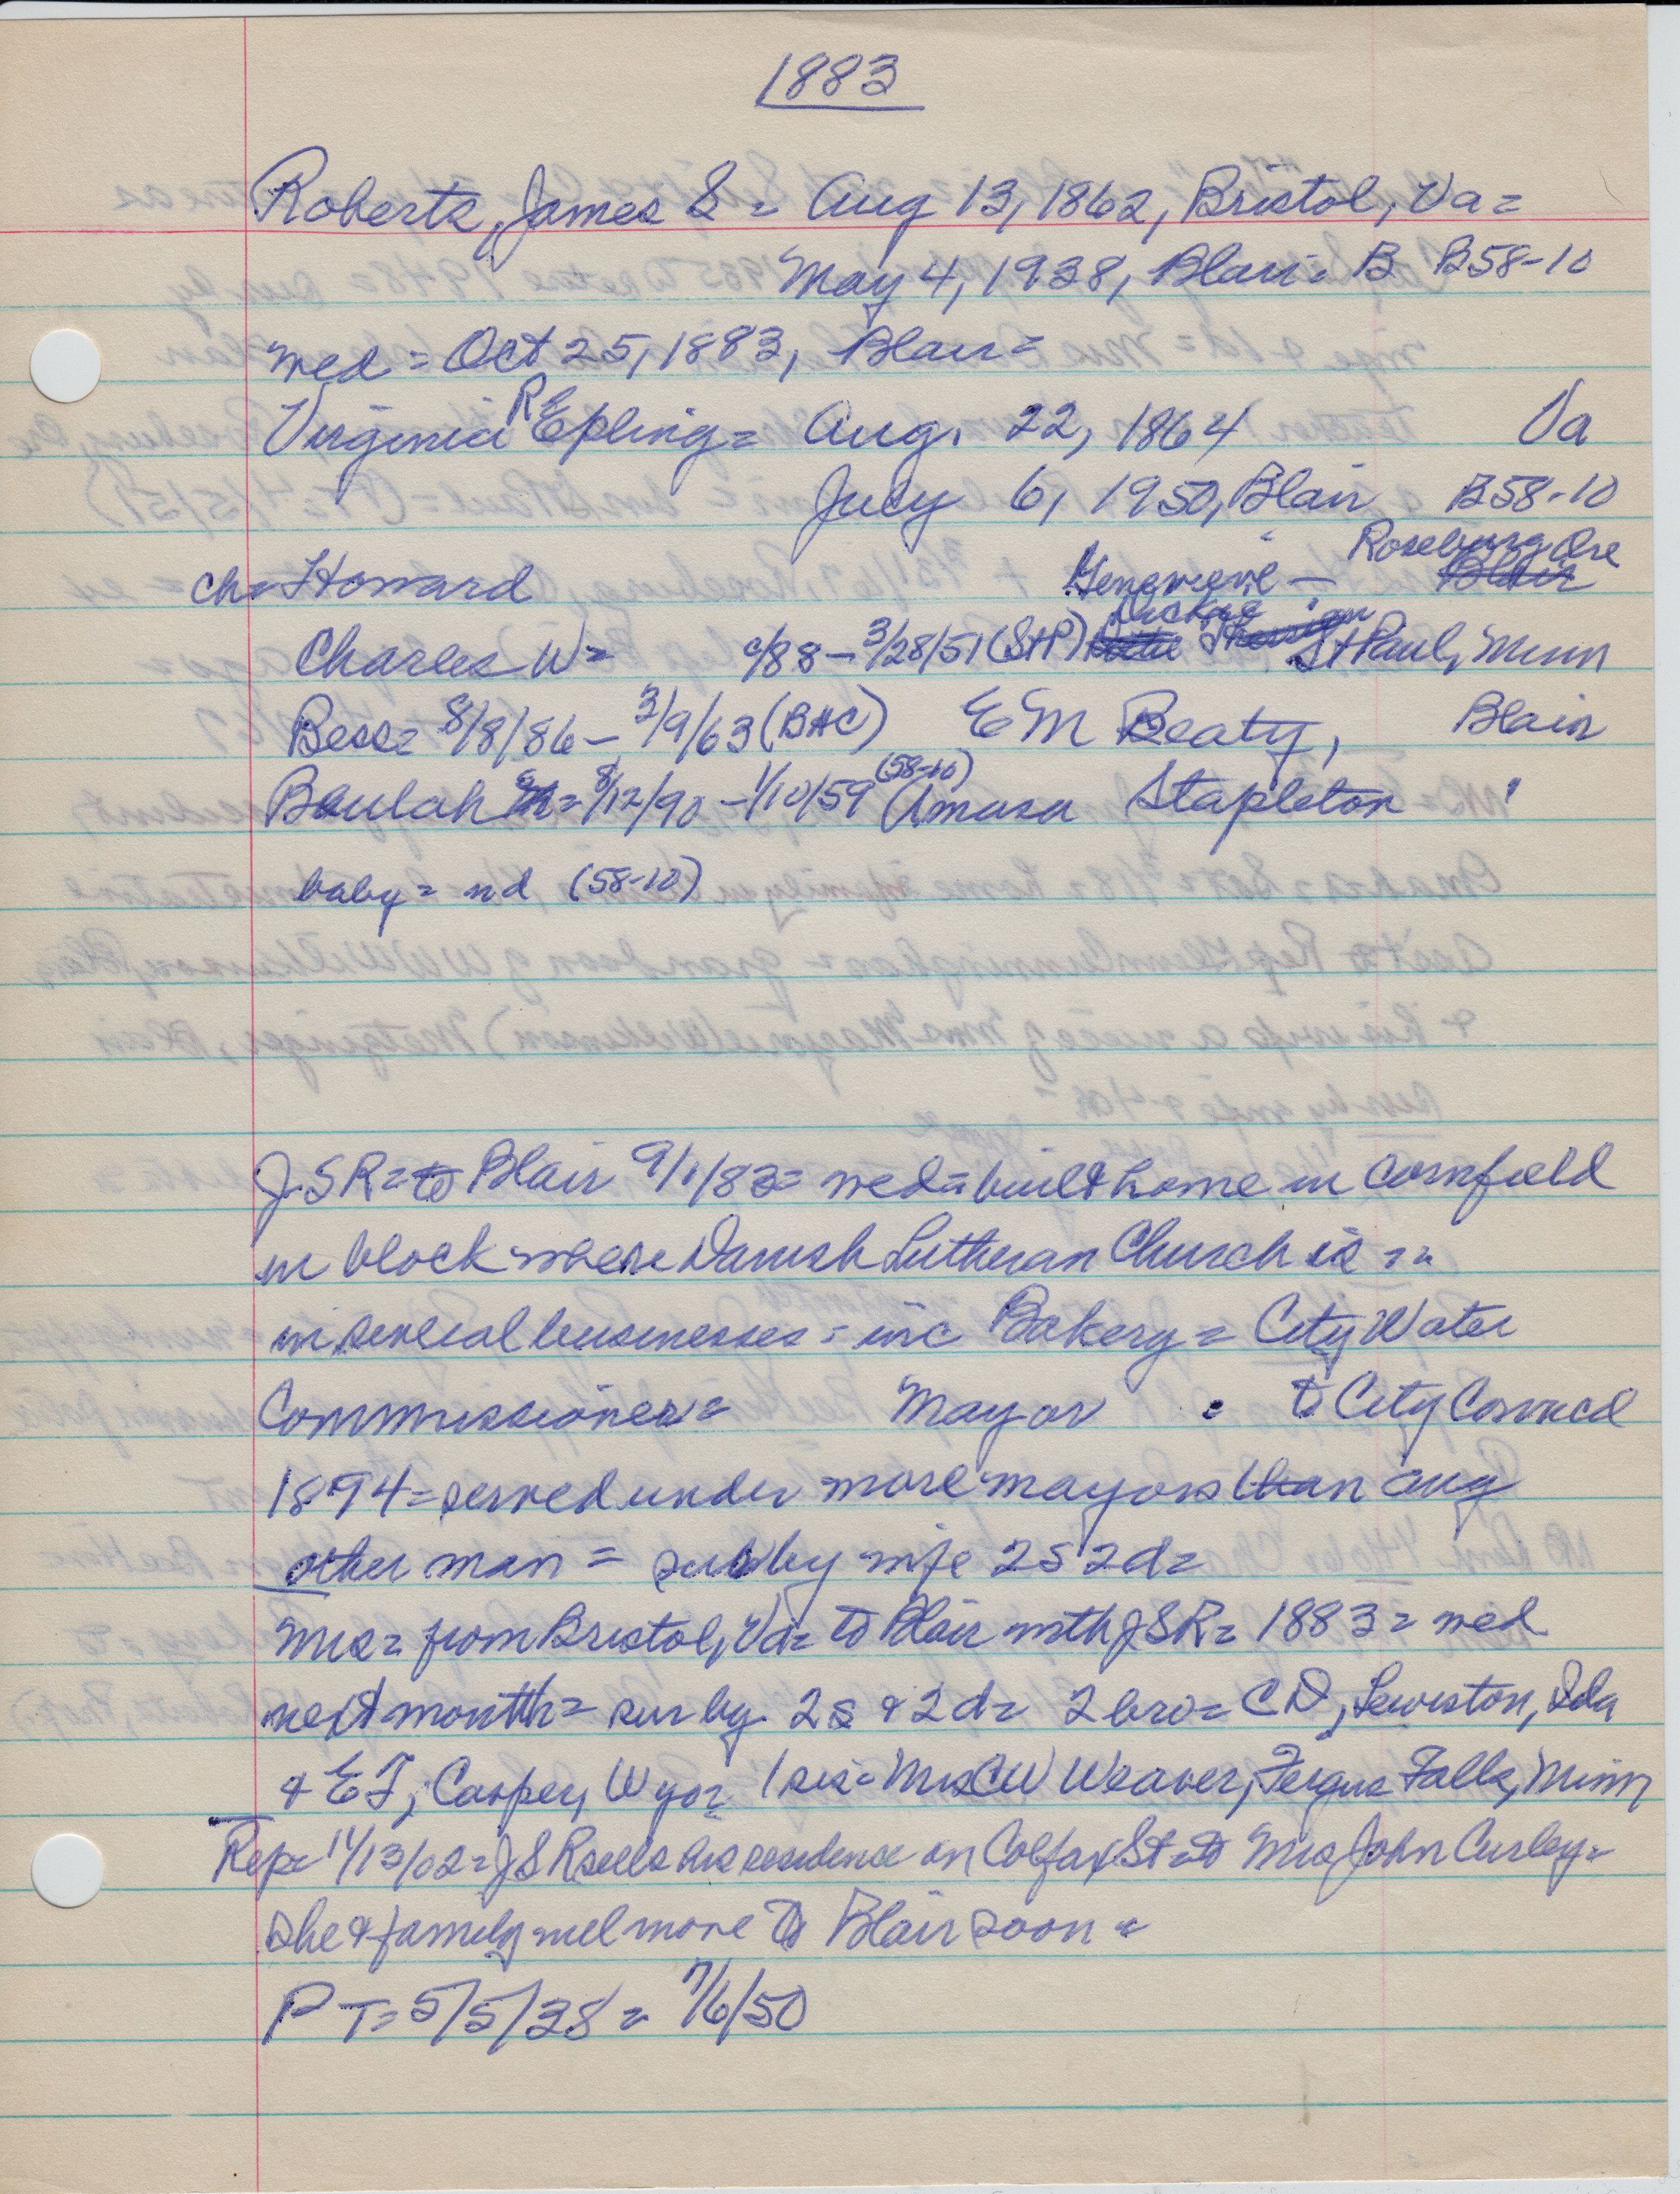 1883
Roberts, James S = Aug 13, 1862, Bristol, Va =
May 4, 1938, Blair = B B58-10
wed = Oct 25, 1883, Blair =
Virginia R Epling = Aug. 22, 1864 Va
July 6, 1950, Blair B58-10
Roseburg Ore
ch = Howard Genevieve — Blair
Charles W = /88 – 3/28/51 (StP) St Paul, Minn
Bess = 8/8/86 – 3/9/63 (BHC) E M Beaty, Blair
(58-10)
Beulah = 8/12/90 – 1/10/59 Amasa Stapleton "
baby = nd (58-10)
J.S R = to Blair 9/1/83 = wed = built home in cornfield
in block where Danish Lutheran Church is =
in several businesses = inc Bakery = City Water
Commissioner = Mayor = to City Council
1894 = served under more mayors than any
other man = sur by wife 2s 2d =
Mrs = from Bristol, Va = to Blair with JSR = 1883 = wed
next month = sur by 2s & 2d = 2 bro = C D, Lewiston, Ida
& E F, Casper, Wyo = 1 sis = Mrs CW Weaver, Fergus Falls, Minn
Rep = 11/13/02 = J S R sells his residence on Colfax St to Mrs John Curley =
she & family will move to Blair soon =
P T = 5/5/38 = 7/6/50